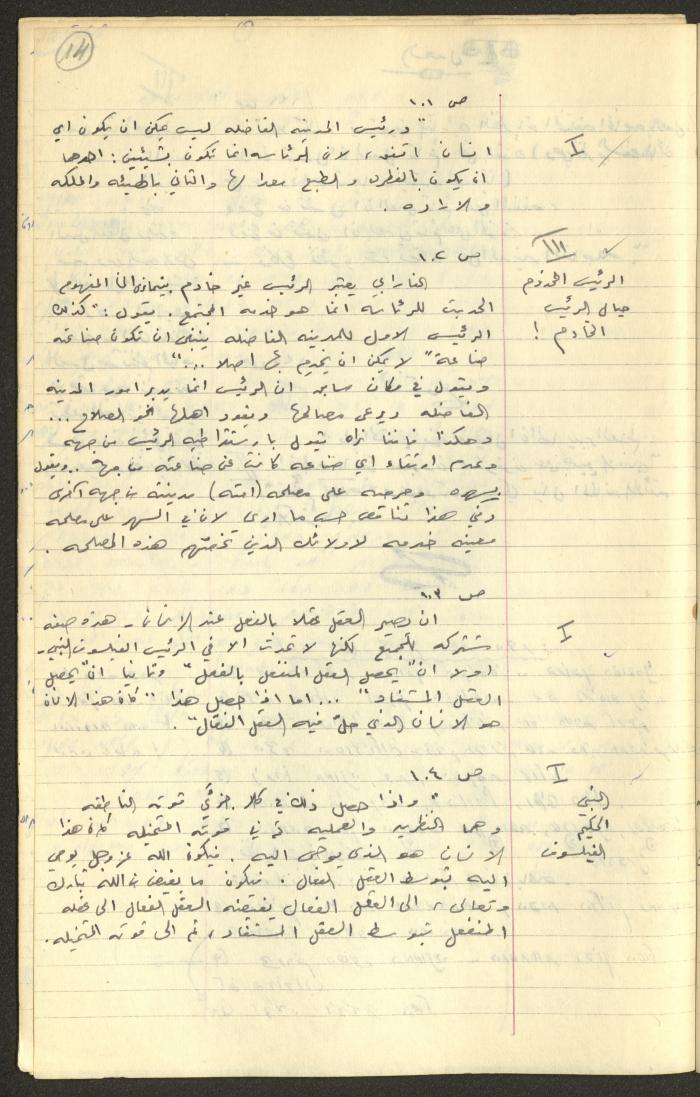 14
ص ١٠١
I
"ورئيس المدينه الفاضله ليس يمكن ان يكون اي
انسان اتفق، لان الرئاسه انما تكون بشيئين: احدهما
ان يكون بالفطره والطبع معدا لها والثاني بالهيئه والملكه
والاراده.
ص ١٠٢
III
الرئيس المخدوم
حيال الرئيس
الخادم!
الفارابي يعتبر الرئيس غير خادم بينما المفهوم
الحديث للرئاسه انما هو خدمه المجتمع. يقول: "كذلك
الرئيس الاول للمدينه الفاضله ينبغي ان تكون صناعته
صناعة" لا يمكن ان يخدم بها اصلا ..."
ويقول في مكان سابق ان الرئيس انما يدير امور المدينه
الفاضله ويرعى مصالحها ويقود اهلها نحو الصلاح ...
وهكذا فاننا نراه يقول بارستقراطيه الرئيس من جهه
وعدم ارتقاء اي صناعه كانت عن صناعته من جهة .. ويقول
بسهره وحرصه على مصلحه (امته) مدينته من جهه اخرى
وفي هذا تناقض حسب ما ارى لان في السهر على مصلحه
معينه خدمه لاولائك الذين تخصّهم هذه المصلحه.
ص ١٠٣
I
ان يصير العقل عقلا بالفعل عند الانسان - هذه صفه
مشتركه للجميع لكنها لا تحدث الا في الرئيس الفيلسوف النبي -
اولا ان "يحصل العقل المنفعل بالفعل" وثانيا ان "يحصل
العقل المستفاد" ... اما اذا حصل هذا "كان هذا الانسان
هو الانسان الذي حلّ فيه العقل الفعّال".
ص ١٠٤
I
النبي
الحكيم
الفيلسوف
"واذا حصل ذلك في كلا جزئَي قوته الناطقه
وهما النظريه والعمليه ثم في قوته المتخيله كان هذا
الانسان هو الذي يوحى اليه. فيكون الله عز وجل يوحي
اليه بتوسط العقل الفعال. فيكون ما يفيض من الله تبارك
وتعالى، الى العقل الفعال يفيضه العقل الفعال الى عقله
المنفعل بتوسط العقل المستفاد، ثم الى قوته المتخيله.